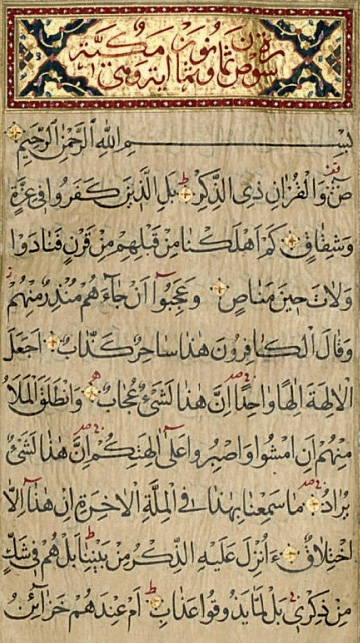 سورة ص ثمانون وثمان آية وهي مكية
بسم الله الرحمن الرحيم
ص وَالْقُرْآنِ ذِي الذِّكْرِ بَلِ الَّذِينَ كَفَرُوا فِي عِزَّةٍ
وَشِقَاقٍ كَمْ اَهْلَكْنَا مِنْ قَبْلِهِمْ مِنْ قَرْنٍ فَنَادَوْا
وَلَاتَ حِينَ مَنَاصٍ وَعَجِبُوا اَنْ جَاءَهُمْ مُنْذِرٌ مِنْهُمْ
وَقَالَ الْكَافِرُونَ هٰذَا سَاحِرٌ كَذَّابٌ اَجَعَلَ
الْاٰلِهَةَ اِلٰهًا وَاحِدًا اِنَّ هٰذَا لَشَيْءٌ عُجَابٌ وَانْطَلَقَ الْمَلَأُ
مِنْهُمْ اَنِ امْشُوا وَاصْبِرُوا عَلٰى اٰلِهَتِكُمْ اِنَّ هٰذَا لَشَيْءٌ
يُرَادُ مَا سَمِعْنَا بِهٰذَا فِي الْمِلَّةِ الْاٰخِرَةِ اِنْ هٰذَا اِلَّا
اخْتِلَاقٌ ءَاُنْزِلَ عَلَيْهِ الذِّكْرُ مِنْ بَيْنِنَا بَلْ هُمْ فِي شَكٍّ
مِنْ ذِكْرِي بَلْ لَمَّا يَذُوقُوا عَذَابِ اَمْ عِنْدَهُمْ خَزَائِنُ